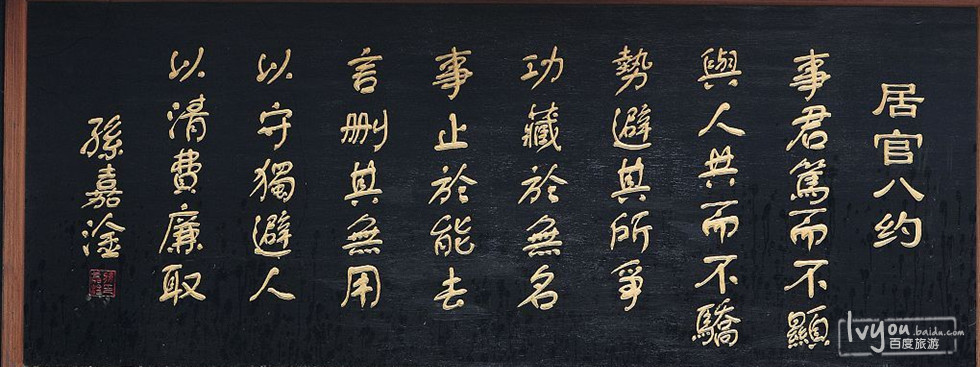 居官八约
事君篤而不顯
與人共而不驕
勢避其所爭
功藏於無名
事止於能去
言删其無用
以守獨避人
以清費廉取
孫嘉淦
lvyou.baidu.com
百度旅游